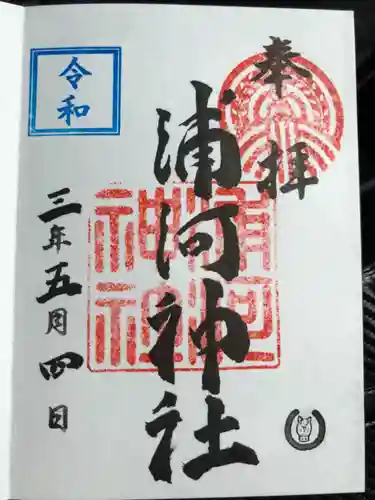 奉拝
浦河神社
浦河
神社
令和
三年五月四日